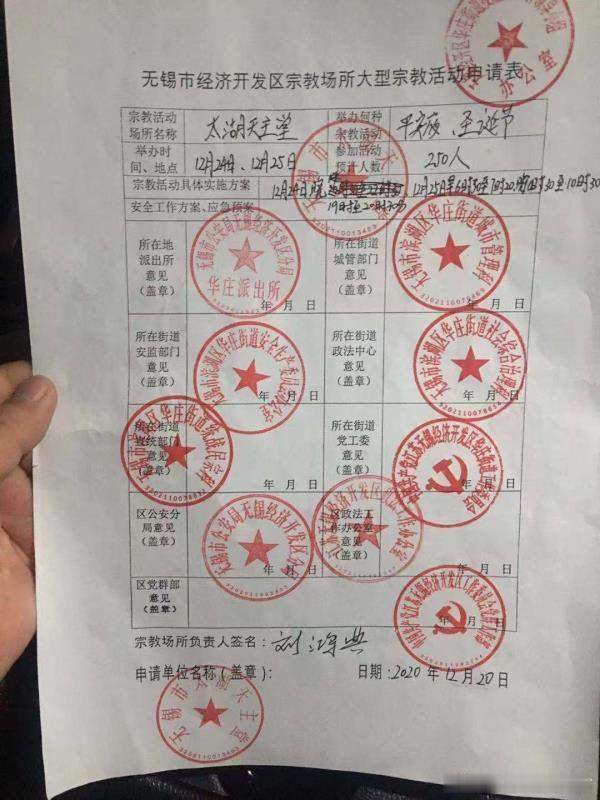 办公室
无锡市经济开发区宗教场所大型宗教活动申请表
宗教活动场所名称 太湖天主堂 举办何种宗教活动 平安夜、圣诞节
举办时间、地点 12月24日、12月25日 参加活动预计人数 250人
宗教活动具体实施方案 12月24日晚
安全工作方案、应急预案 19时至20时30分
所在地派出所意见(盖章) 年 月 日
无锡市公安局无锡经济开发区分局
华庄派出所
所在街道城管部门意见(盖章) 年 月 日
无锡市滨湖区华庄街道城市管理科
所在街道安监部门意见(盖章) 年 月 日
无锡市滨湖区华庄街道安全生产委员会办公室
所在街道政法中心意见(盖章) 年 月 日
无锡市滨湖区华庄街道社会综合治理
所在街道宣统部门意见(盖章) 年 月 日
无锡市滨湖区华庄街道统战民宗
所在街道党工委意见(盖章) 年 月 日
中国共产党江苏无锡经济开发区华庄街道工作委员会
区公安分局意见(盖章) 年 月 日
无锡市公安局无锡经济开发区分局
区政法工作办公室意见(盖章) 年 月 日
区党群部意见(盖章) 年 月 日
中国共产党江苏无锡经济开发区工作委员会党群工作部
宗教场所负责人签名:
申请单位名称(盖章): 日期:2020年12月20日
无锡市太湖天主堂